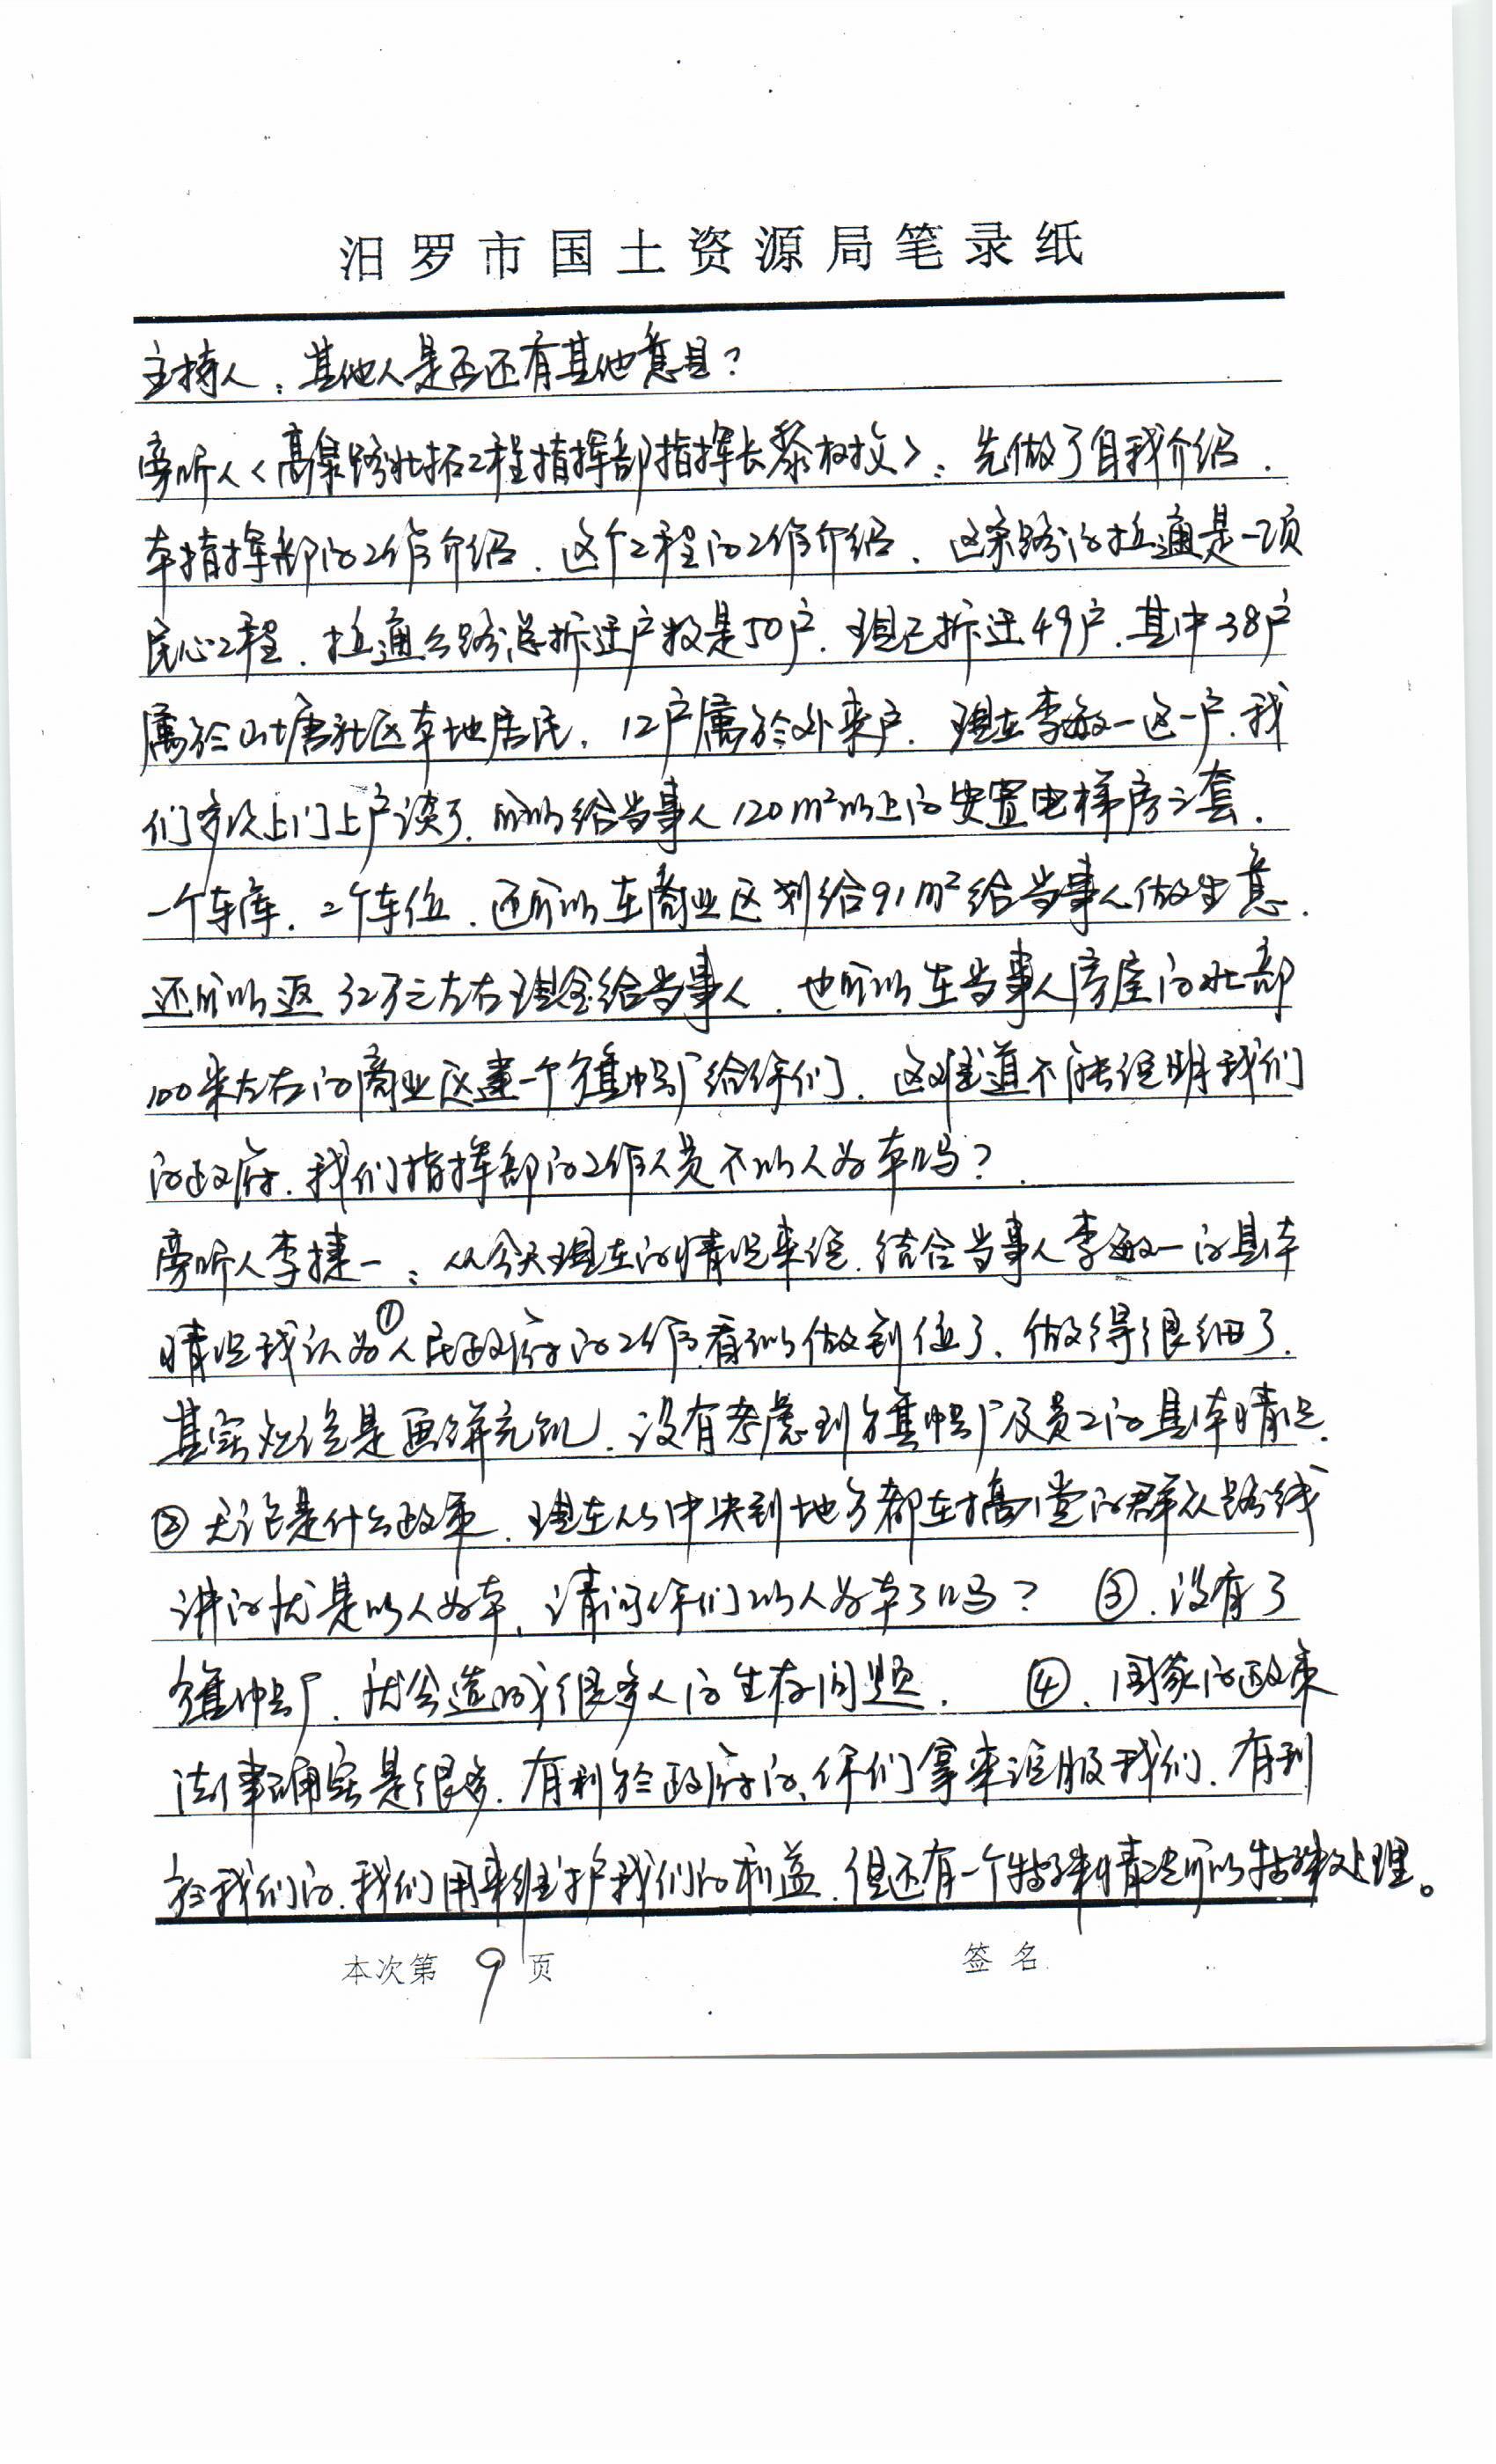 汨罗市国土资源局笔录纸
主持人：其他人是否还有其他意见？
旁听人〈高泉路北拓工程指挥部指挥长黎树文〉：先做了自我介绍.
本指挥部的工作介绍.这个工程的工作介绍.这条路的拉通是一项
民心工程.拉通公路总拆迁户数是50户.现已拆迁49户.其中38户
属于山塘社区本地居民，12户属于外来户.现在李敏一这一户.我
们多次上门上户谈了.可以给当事人120m²以上的安置电梯房二套.
一个车库.二个车位.还可以在商业区划给91m²给当事人做生意.
还可以返32万元左右现金给当事人.也可以在当事人房屋的北部
100米左右的商业区建一个缝巾厂给你们.这难道不能说明我们
的政府.我们指挥部的工作人员不以人为本吗？
旁听人李捷一：从今天现在的情况来说.结合当事人李敏一的具体
情况我认为①人民政府的工作.看似做到位了.做得很细了.
其实应该是画饼充饥.没有考虑到缝巾厂及员工的具体情况.
②无论是什么政策.现在从中央到地方都在搞党的群众路线
讲的就是以人为本，请问你们以人为本了吗？ ③.没有了
缝巾厂.就会造成很多人的生存问题. ④.国家的政策
法律确实是很多.有利于政府的，你们拿来说服我们.有利
于我们的.我们用来维护我们的利益.但还有一个特殊情况可以特殊处理。
本次第 9 页 签名